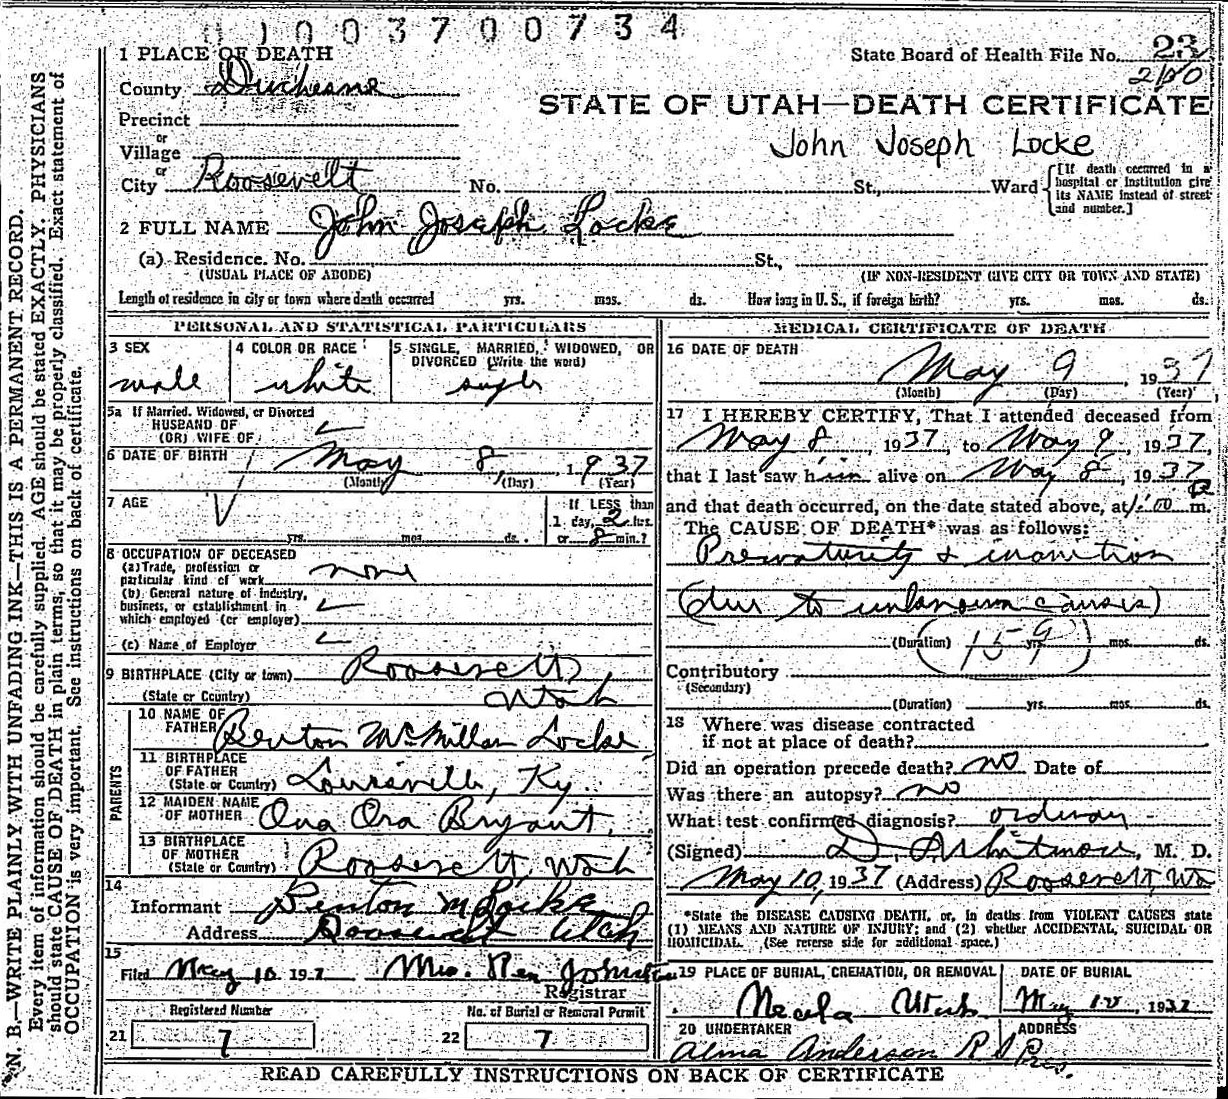 0100370 0734
1 PLACE OF DEATH
State Board of Health File No. 23
County Duchesne
210
STATE OF UTAH—DEATH CERTIFICATE
Precinct
or
Village
John Joseph Locke
or
City Roosevelt No. St., Ward
[If death occurred in a hospital or institution give its NAME instead of street and number.]
2 FULL NAME John Joseph Locke
(a) Residence. No. St.,
(USUAL PLACE OF ABODE) (IF NON-RESIDENT GIVE CITY OR TOWN AND STATE)
Length of residence in city or town where death occurred yrs. mos. ds. How long in U. S., if foreign birth? yrs. mos. ds.
PERSONAL AND STATISTICAL PARTICULARS
3 SEX
male
4 COLOR OR RACE
white
5 SINGLE, MARRIED, WIDOWED, OR
DIVORCED (Write the word)
single
5a If Married, Widowed, or Divorced
HUSBAND OF
(OR) WIFE OF
6 DATE OF BIRTH May 8, 1937
(Month) (Day) (Year)
7 AGE
yrs. mos. ds.
If LESS than
1 day, 2 hrs.
or 8 min.?
8 OCCUPATION OF DECEASED
(a) Trade, profession or
particular kind of work none
(b) General nature of industry,
business, or establishment in
which employed (or employer)
(c) Name of Employer
9 BIRTHPLACE (City or town) Roosevelt
(State or Country) Utah
PARENTS
10 NAME OF
FATHER Benton McMillan Locke
11 BIRTHPLACE
OF FATHER
(State or Country) Louisville, Ky.
12 MAIDEN NAME
OF MOTHER Ova Ora Bryant
13 BIRTHPLACE
OF MOTHER
(State or Country) Roosevelt, Utah
14
Informant Benton M Locke
Address Roosevelt Utah
15
Filed May 10 1937 Mrs. Ren Johnston
Registrar
Registered Number No. of Burial or Removal Permit
21 7 22 7
MEDICAL CERTIFICATE OF DEATH
16 DATE OF DEATH
May 9, 1937
(Month) (Day) (Year)
17 I HEREBY CERTIFY, That I attended deceased from
May 8, 1937, to May 9, 1937,
that I last saw him alive on May 8, 1937
and that death occurred, on the date stated above, at 1:00 a m.
The CAUSE OF DEATH* was as follows:
Prematurity & inanition
(due to unknown causes)
(Duration) yrs. mos. ds.
159
Contributory
(Secondary)
(Duration) yrs. mos. ds.
18 Where was disease contracted
if not at place of death?
Did an operation precede death? no Date of
Was there an autopsy? no
What test confirmed diagnosis? ordinary
(Signed) D. Whitmore, M. D.
May 10, 1937 (Address) Roosevelt, Ut
*State the DISEASE CAUSING DEATH, or, in deaths from VIOLENT CAUSES state
(1) MEANS AND NATURE OF INJURY; and (2) whether ACCIDENTAL, SUICIDAL OR
HOMICIDAL. (See reverse side for additional space.)
19 PLACE OF BURIAL, CREMATION, OR REMOVAL
Neola Utah
DATE OF BURIAL
May 10, 1937
20 UNDERTAKER
Alma Anderson R S
ADDRESS
Pres.
READ CAREFULLY INSTRUCTIONS ON BACK OF CERTIFICATE
N. B.—WRITE PLAINLY WITH UNFADING INK—THIS IS A PERMANENT RECORD.
Every item of information should be carefully supplied. AGE should be stated EXACTLY. PHYSICIANS
should state CAUSE OF DEATH in plain terms, so that it may be properly classified. Exact statement of
OCCUPATION is very important. See instructions on back of certificate.